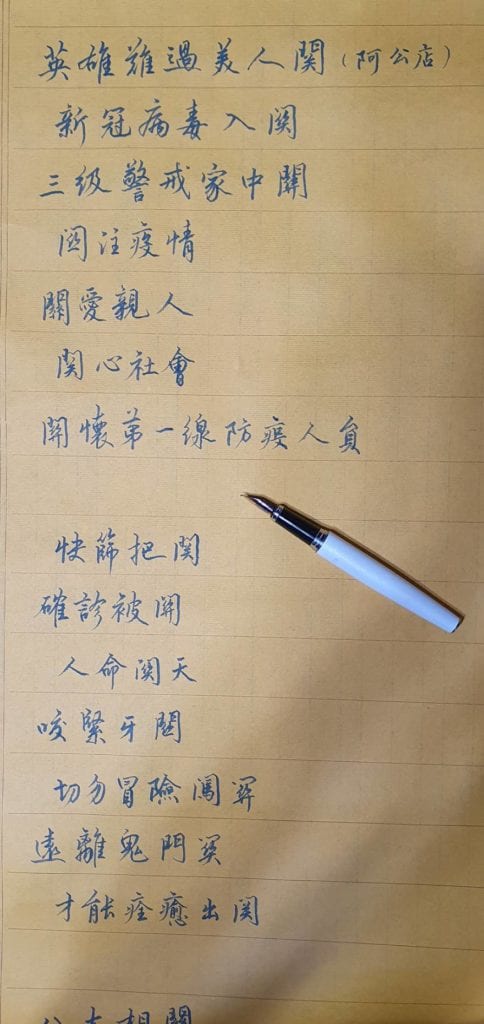 英雄難過美人関（阿公店）
新冠病毒入関
三级警戒家中關
関注疫情
關愛親人
関心社會
関懷第一線防疫人員
快篩把関
確診被関
人命関天
咬緊牙關
切勿冒險闖関
遠離鬼門关
才能痊癒出関
相關